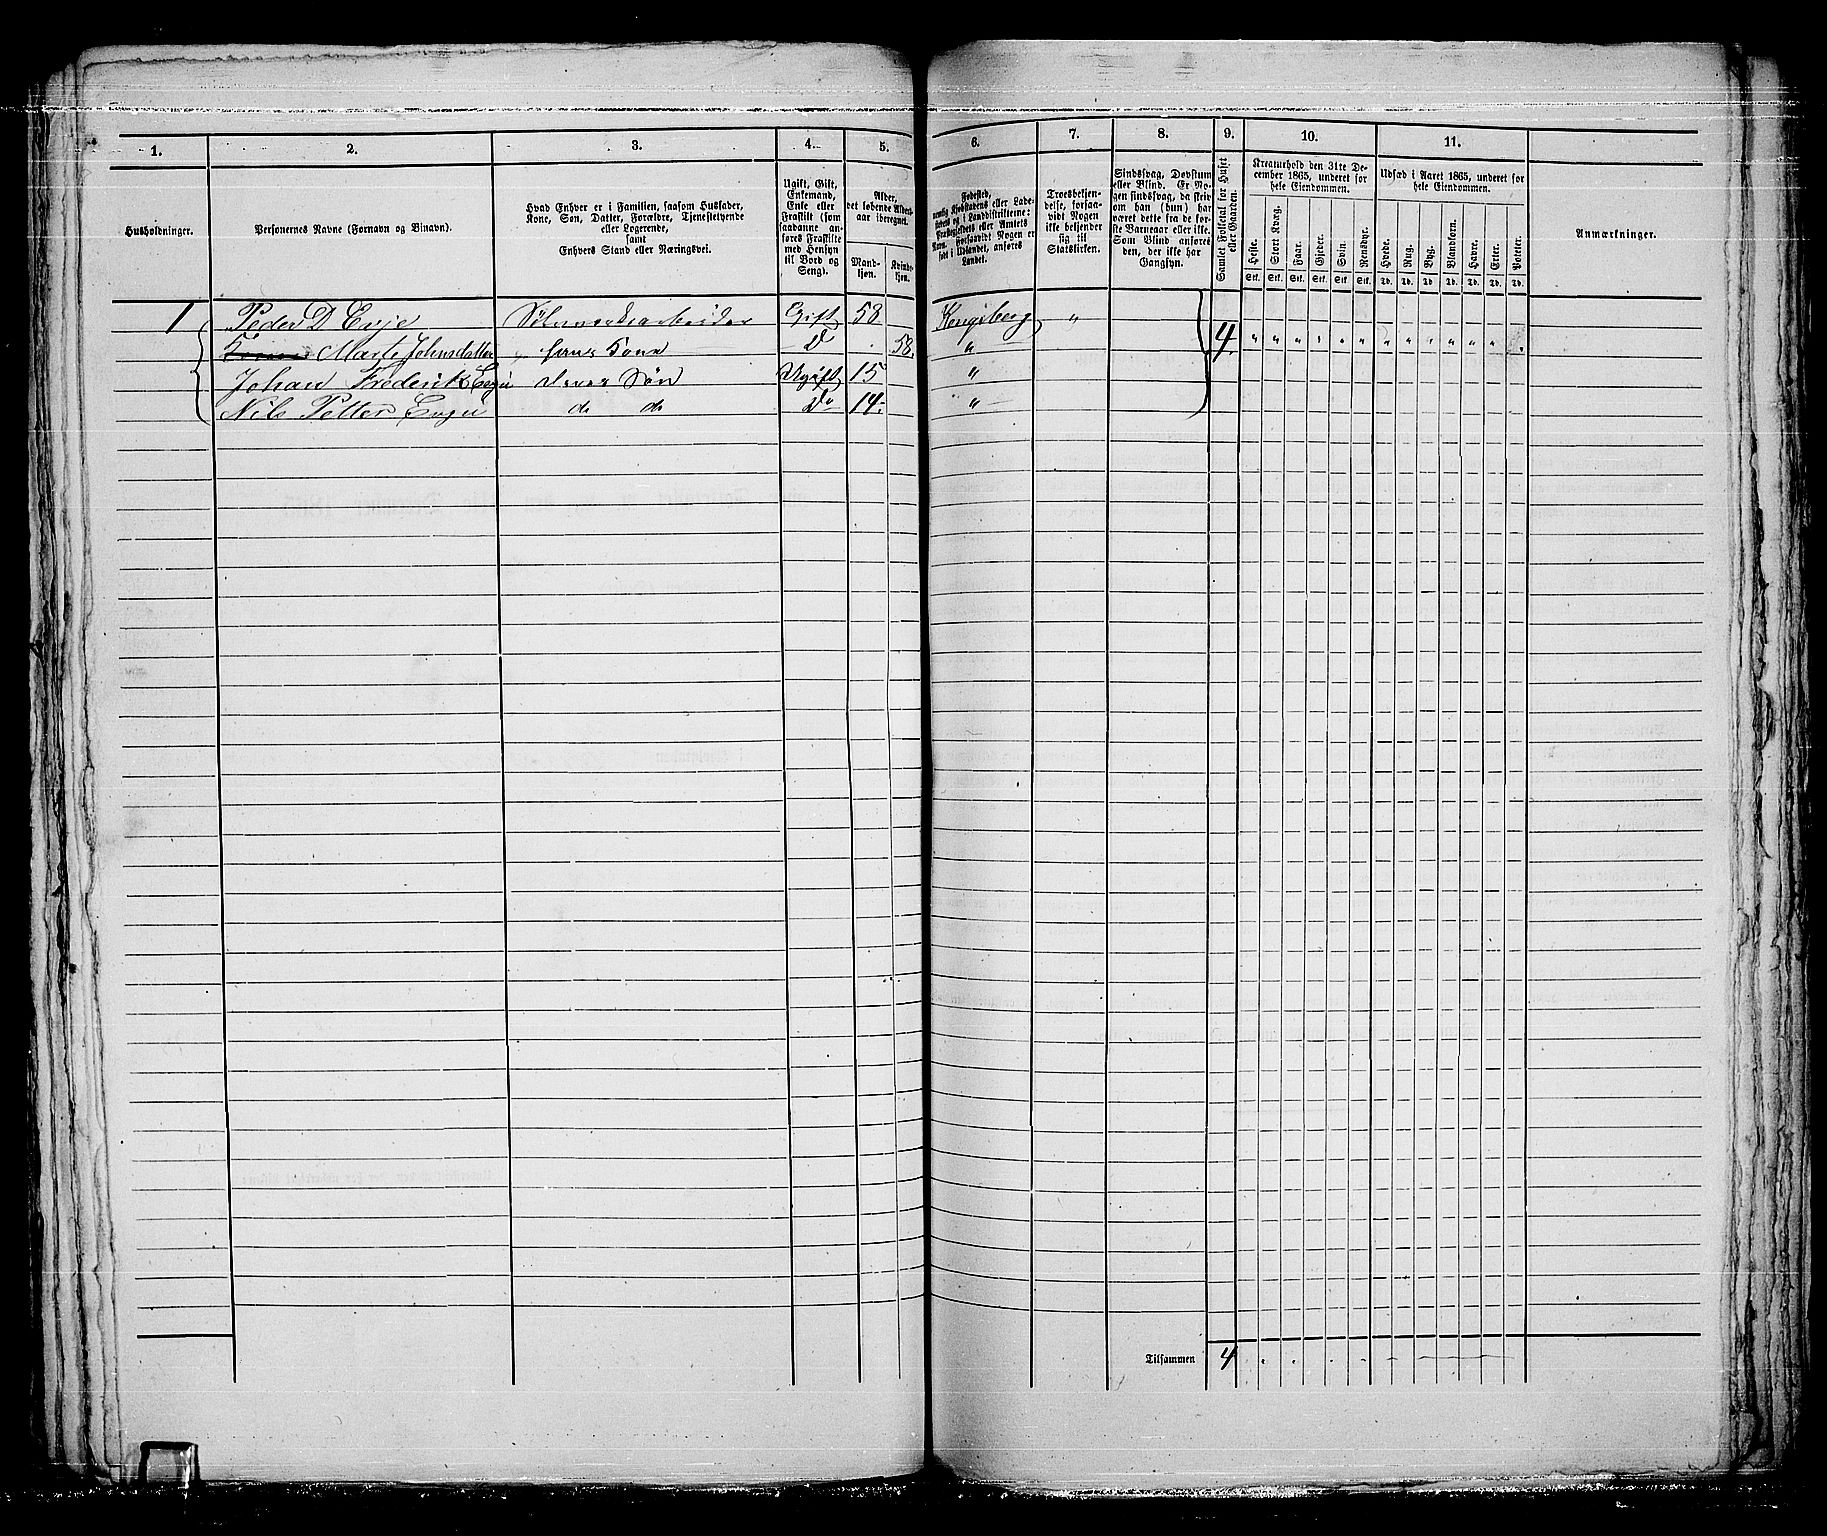 1. 2. 3. 4. 5. 6. 7. 8. 9. 10. 11.
Husholdninger.
Personernes Navne (Fornavn og Binavn).
Hvad Enhver er i Familien, saasom Husfader,
Kone, Søn, Datter, Forældre, Tjenestetyende
eller Logerende,
samt
Enhvers Stand eller Næringsvei.
Ugift, Gift,
Enkemand,
Enke eller
Fraskilt (som
saadanne anføres
Fraskilte
med Hensyn
til Bord og
Seng).
Alder,
det løbende Alders-
aar iberegnet.
Mand-
kjøn.
Kvinde-
kjøn.
Fødested,
Troesbekjen-
delse, forsaa-
vidt Nogen
ikke bekjender
sig til
Statskirken.
Sindssvag, Døvstum
eller Blind. Er No-
gen sindssvag, da skriv
om han (hun) har
været dette fra de før-
ste Barneaar eller ikke.
Som Blind anføres
den, der ikke har
Gangsyn.
Samlet Folketal for Huset
eller Gaarden.
Kreaturhold den 31te De-
cember 1865, underet for
hele Eiendommen.
Heste. Stort Kvæg. Faar. Gjeder. Svin. Rensdyr.
Stk. Stk. Stk. Stk. Stk. Stk.
Udsæd i Aaret 1865, underet for
hele Eiendommen.
Hvede. Rug. Byg. Blandkorn. Havre. Erter. Poteter.
Td. Td. Td. Td. Td. Td. Td.
Anmærkninger.
1 Peder D Evje Sølvverksarbeider Gift 58 Kongsberg "
Marte Johnsdatter hans Kone D 58. " 4. " " " " " " " " " " " "
Johan Frederik Deres Søn Ugift 15 "
Nils Petter do do Do 14. "
Tilsammen 4